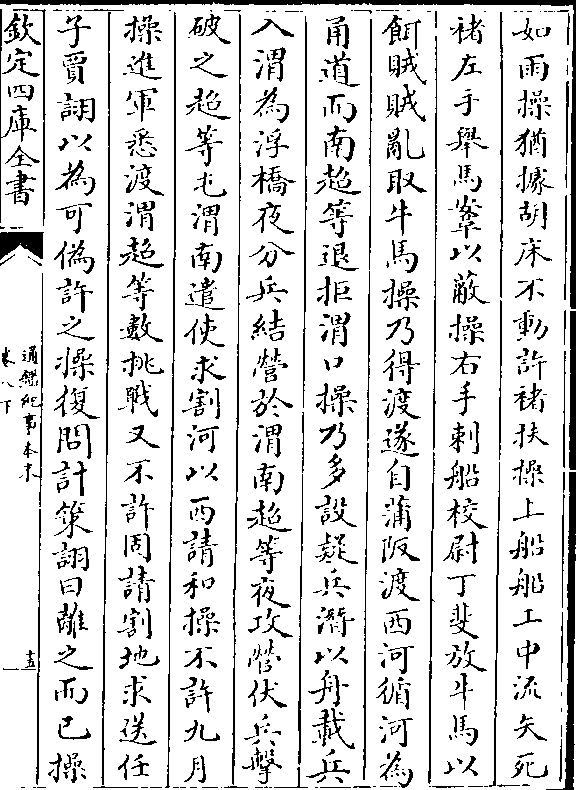 如雨操猶據胡床不動許褚扶操上船船工中流矢死
褚左手舉馬鞌以蔽操右手刺船校尉丁斐放牛馬以
餌賊賊亂取牛馬操乃得渡遂自蒲阪渡西河循河為
甬道而南超等退拒渭口操乃多設疑兵潛以舟載兵
入渭為浮橋夜分兵結營於渭南超等夜攻營伏兵擊
破之超等屯渭南遣使求割河以西請和操不許九月
操進軍悉渡渭超等數挑戰又不許固請割地求送任
子賈詡以為可偽許之操復問計策詡曰離之而已操
欽定四庫全書
通鑑紀事本末
卷八下
十五